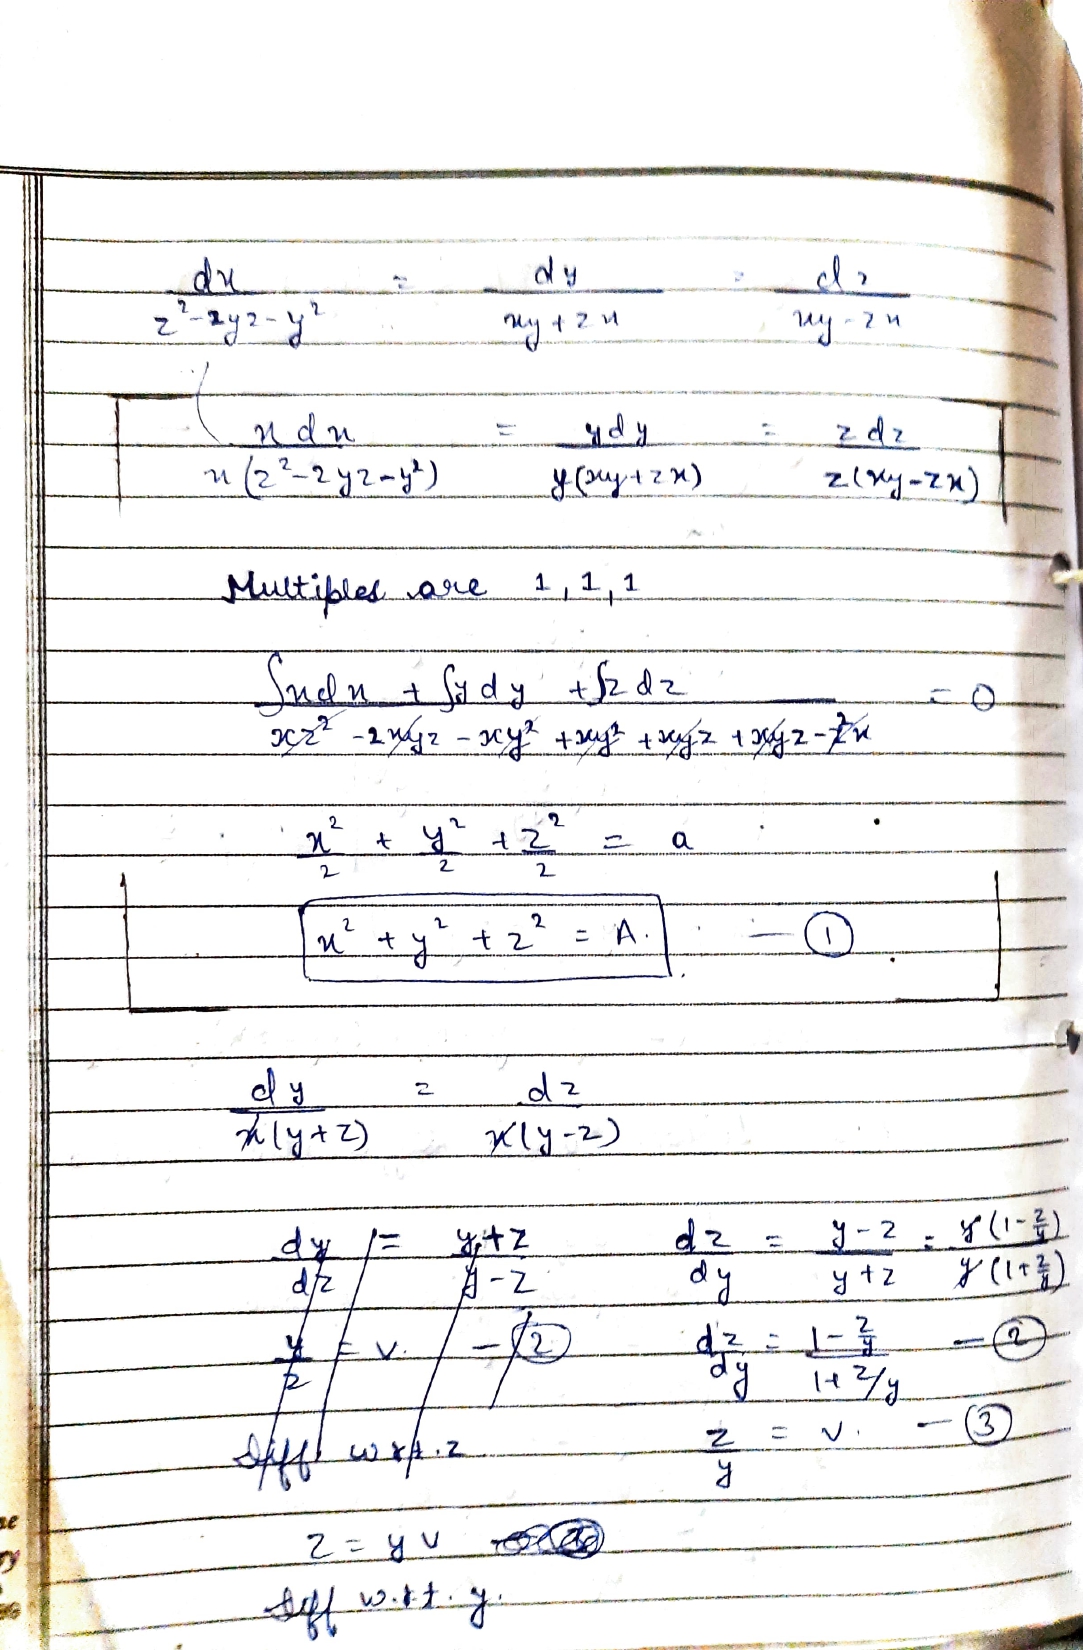 dx/(z²-2yz-y²) = dy/(xy+zx) = dz/(xy-zx)
x dx/(x(z²-2yz-y²)) = y dy/(y(xy+zx)) = z dz/(z(xy-zx))
Multiples are 1, 1, 1
(∫x dx + ∫y dy + ∫z dz)/(xz² -2xyz - xy² + xy² + xyz + xyz - z²x) = 0
x²/2 + y²/2 + z²/2 = a
x² + y² + z² = A. — ①
dy/(x(y+z)) = dz/(x(y-z))
dy/dz = (y+z)/(y-z)
y/z = v. — ②
Diff w.r.t. z
dz/dy = (y-z)/(y+z) = y(1-z/y)/(y(1+z/y))
dz/dy = (1-z/y)/(1+z/y) — ②
z/y = v. — ③
z = yv
Diff w.r.t. y.